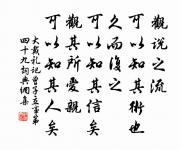 觀說之流
可以知其術也
久而復之
可以知其信矣
觀其所愛親
可以知其人矣
大戴礼记曾子立事第
四十九词典网集